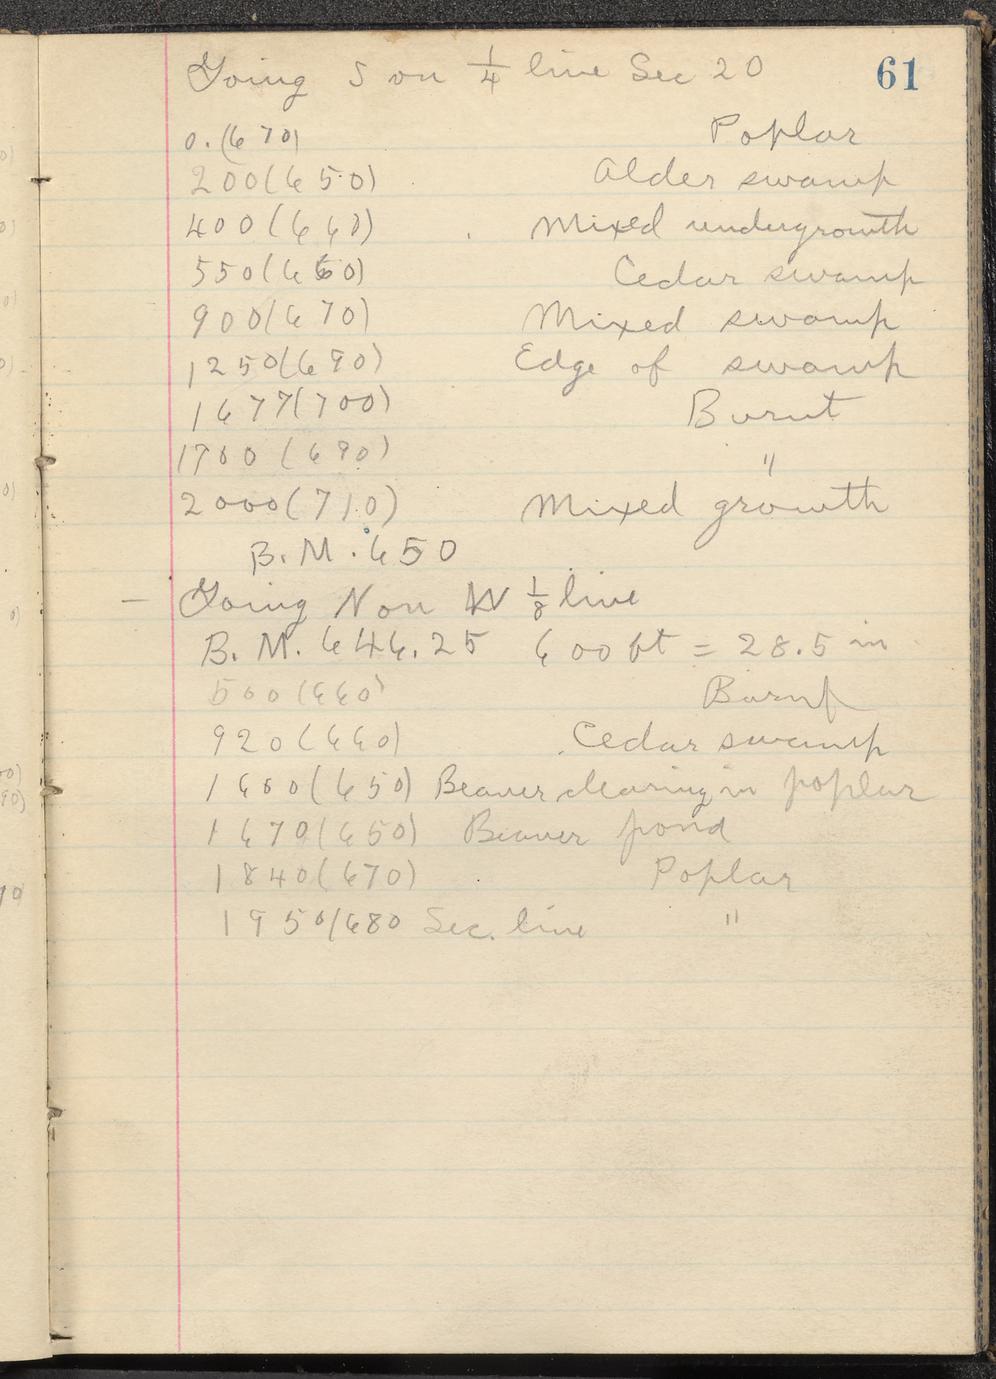 61
Going S on 1/4 line Sec 20
0.(670) Poplar
200(650) Alder swamp
400(660) Mixed undergrowth
550(660) Cedar swamp
900(670) Mixed swamp
1250(690) Edge of swamp
1677(700) Burnt
1760 (690) "
2000(710) Mixed growth
B.M. 650
– Going N on W 1/8 line
B.M. 646.25 600 ft = 28.5 in
500(660) Burnt
920(660) Cedar swamp
1600(650) Beaver clearing in poplar
1670(650) Beaver pond
1840(670) Poplar
1950(680 Sec. line "